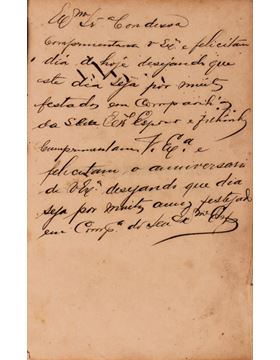 Exmª Srª Condessa
Comprimentam V Exª e felicitam
dia d'hoje desejando que
este dia seja por muitos
festados em Companhia
da S.
Comprimentam V. Exª e
felicitam o anniversari
de V Exª desejando que dia
seja por muitos annos festejad
em Compª do seu Exmº